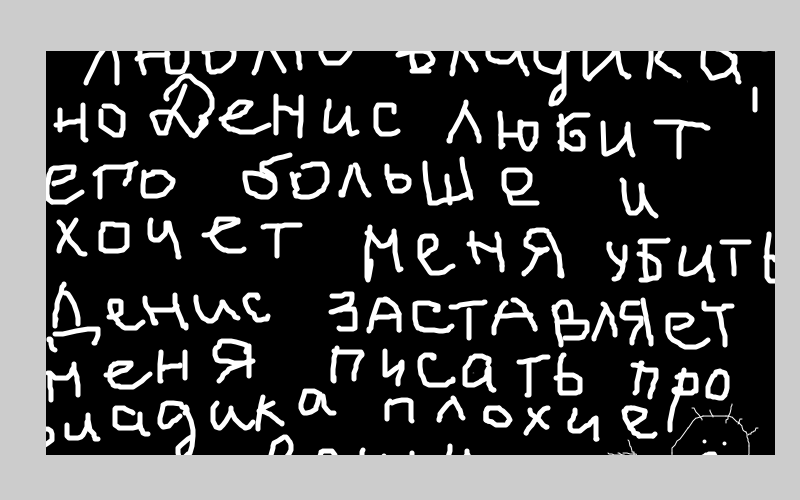 люблю владика,
но Денис любит
его больше и
хочет меня убить
Денис заставляет
меня писать про
владика плохие